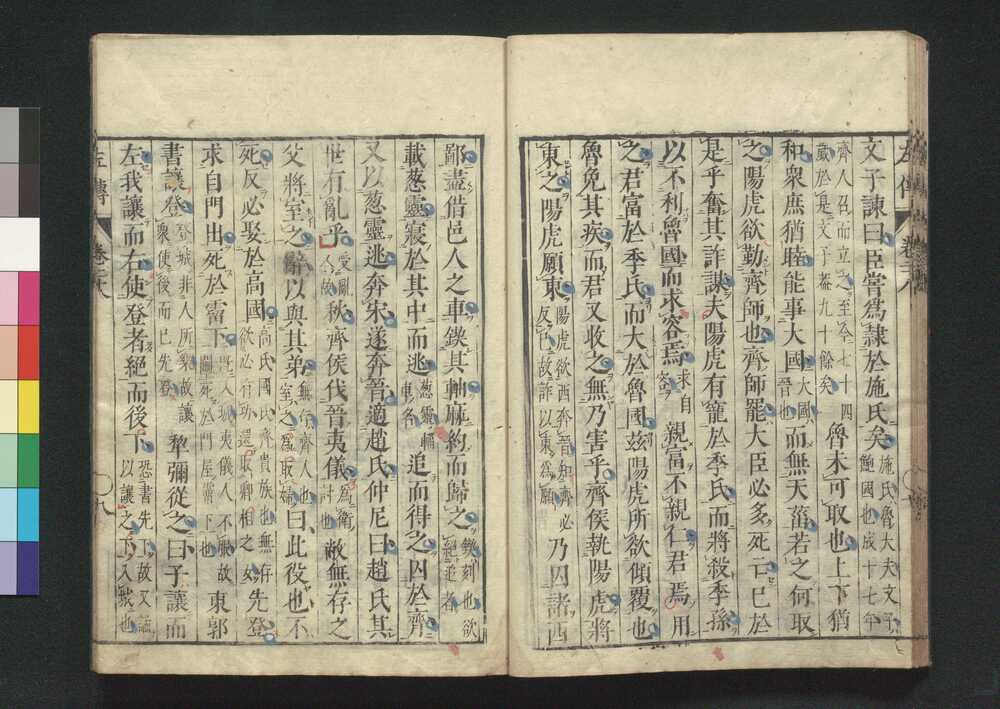 左傳 卷二十八
文子諫曰臣嘗爲隸於施氏矣施氏魯大夫文子鮑國也成十七年
齊人召而立之至今七十四歲於是文子蓋九十餘矣魯未可取也上下猶
和衆庶猶睦能事大國大國晉也而無天菑若之何取
之陽虎欲勤齊師也齊師罷大臣必多死亡已於
是乎奮其詐謀夫陽虎有寵於季氏而將殺季孫
以不利魯國而求容焉求自容親富不親仁君焉用
之君富於季氏而大於魯國茲陽虎所欲傾覆也
魯免其疾而君又收之無乃害乎齊侯執陽虎將
東之陽虎願東陽虎欲西奔晉知齊必反己故詐以東爲願乃囚諸西
鄙盡借邑人之車鍥其軸麻約而歸之鍥刻也欲絶追者
載葱靈寢於其中而逃葱靈輜車名追而得之囚於齊
又以葱靈逃奔宋遂奔晉適趙氏仲尼曰趙氏其
世有亂乎受亂人故秋齊侯伐晉夷儀爲衛討也敝無存之
父將室之辭以與其弟無存齊人也室之爲取婦曰此役也不
死反必娶於高國高氏國氏齊貴族也無存欲必有功還取卿相之女先登
求自門出死於霤下既入城夷儀人不服故鬬死於門屋霤下也東郭
書讓登登城非人所樂故讓衆使後而己先登犂彌從之曰子讓而
左我讓而右使登者絶而後下恐書先下故又譎以讓之下入城也
左傳 卷二十八 九